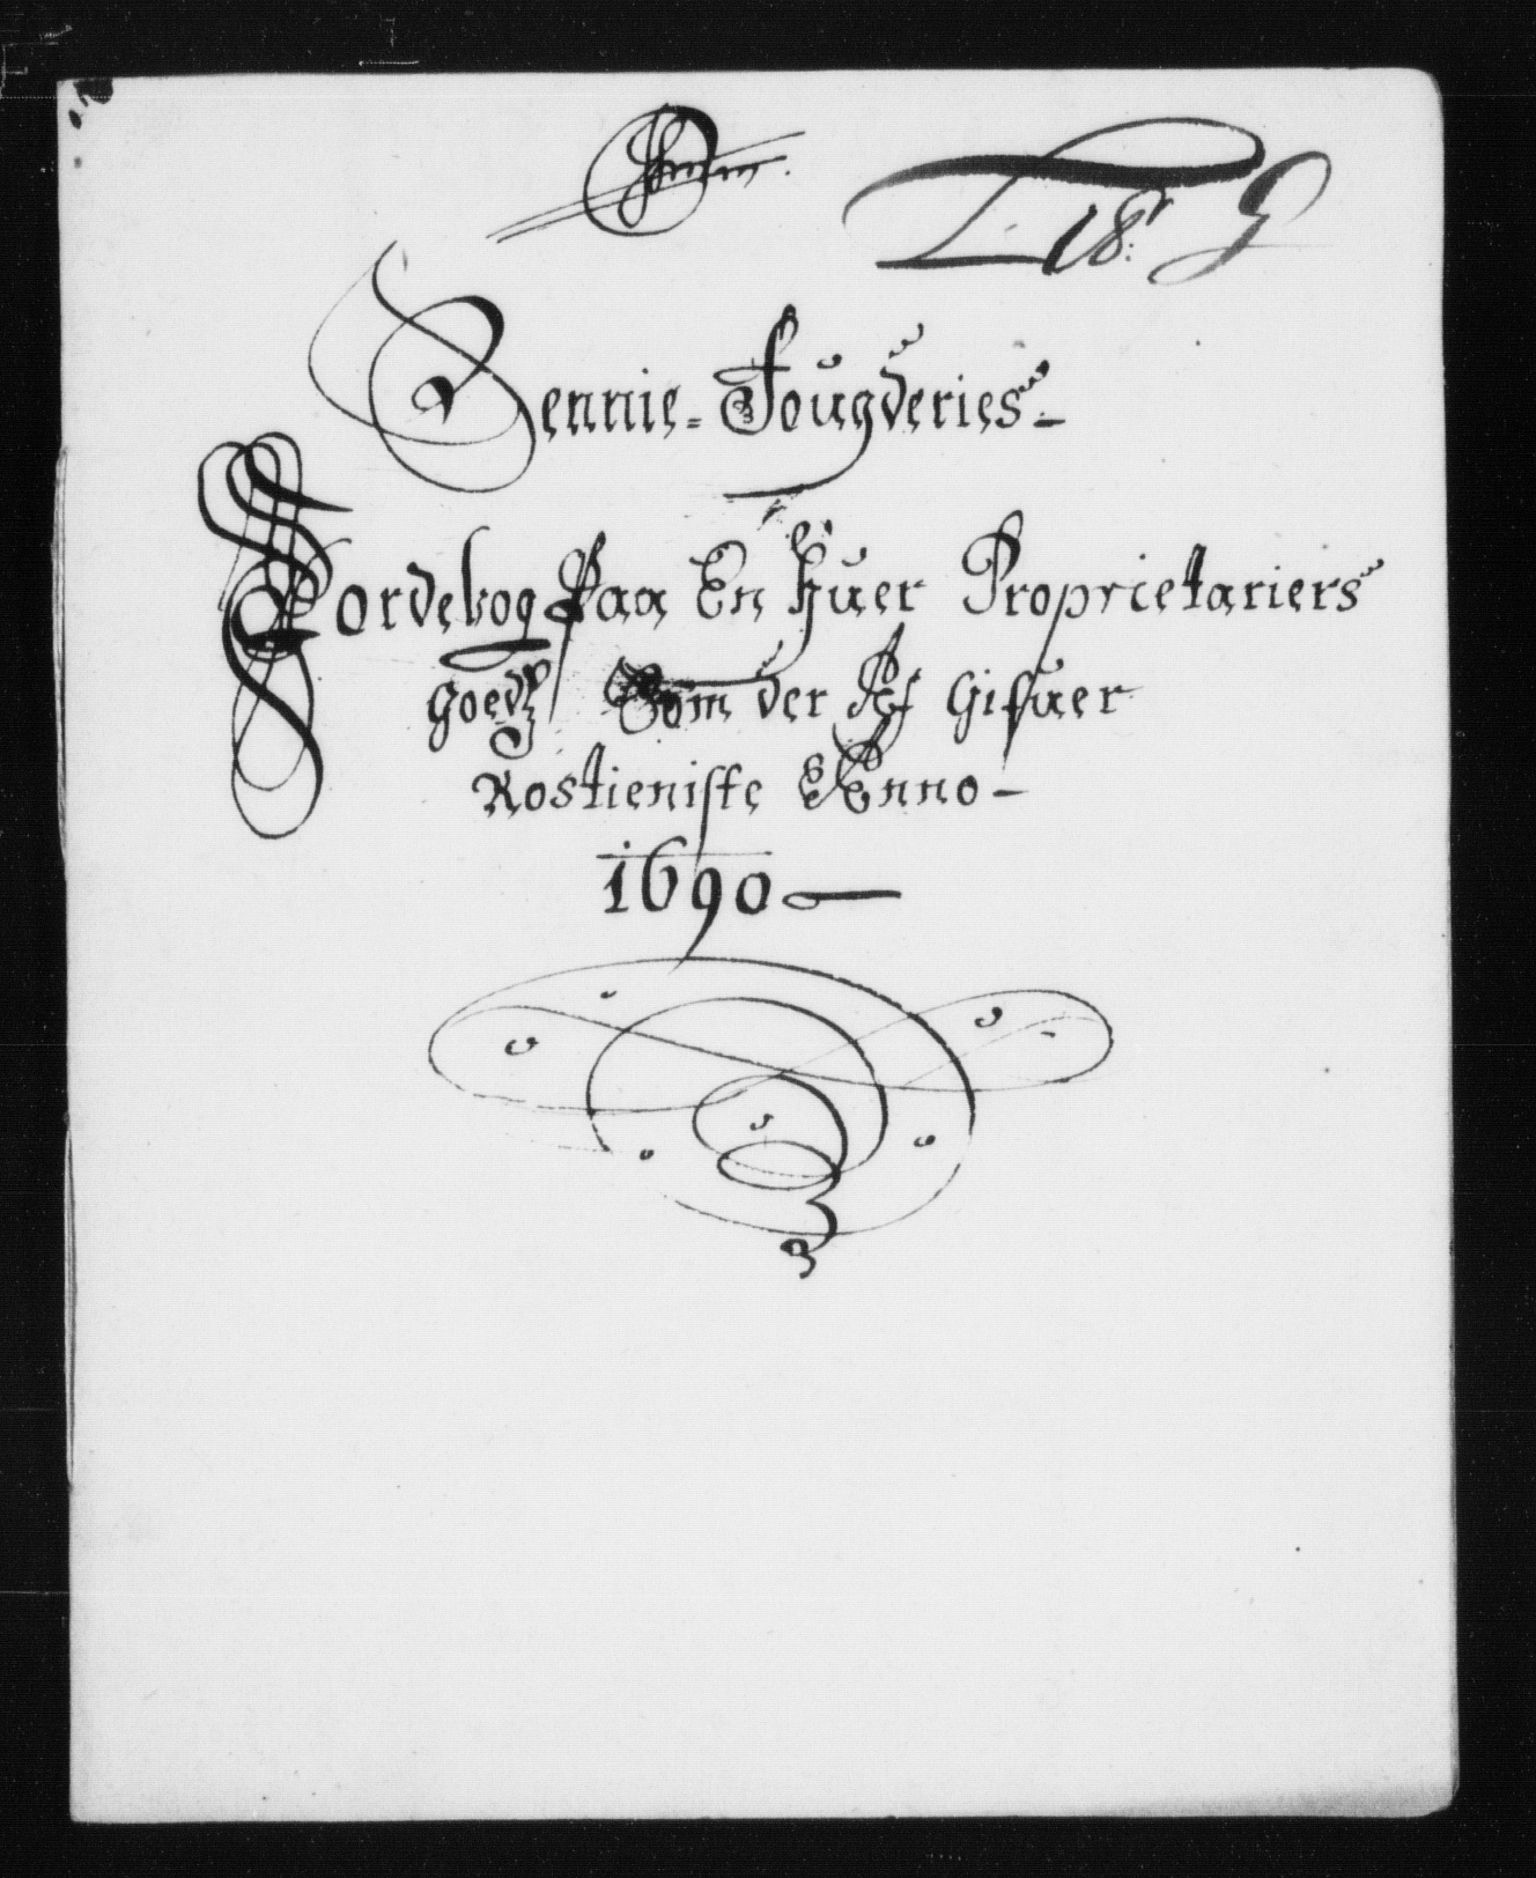 L 18 G
Bennie- Fougderies-
Jordebog Paa En huer Proprietariers
goedz Som der Af Gifuer
Rostieniste Anno-
1690